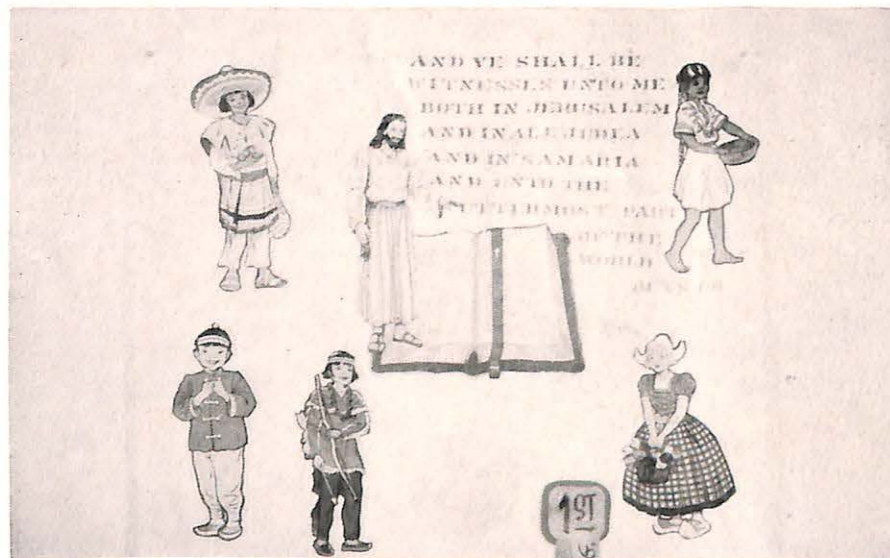 AND YE SHALL BE
WITNESSES UNTO ME
BOTH IN JERUSALEM
AND IN ALL JUDEA
AND IN SAMARIA
AND UNTO THE
UTTERMOST PART
OF THE
WORLD
1ST